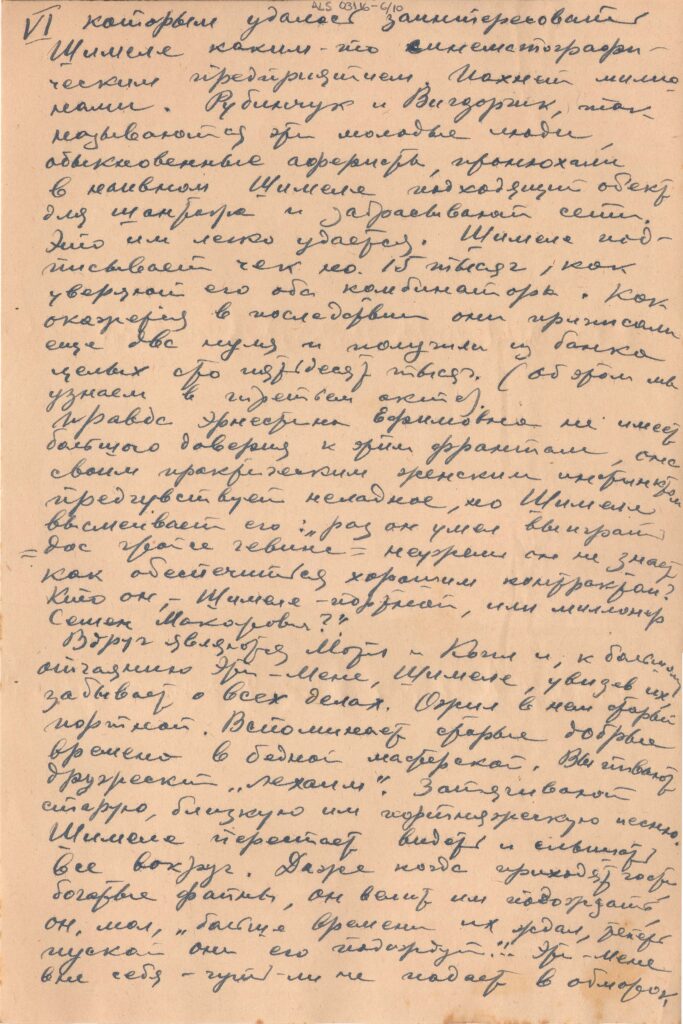 ALS 03116-6/10
VI которым удалось заинтересовать
Шимеле каким-то синематографи-
ческим предприятием. Пахнет милио-
нами. Рубинчук и Вигдорчик, так
называются эти молодые люди,
обыкновенные аферисты, пронюхали
в наивном Шимеле подходящий объект
для шантажа и забрасывают сети.
Это им легко удается. Шимеле под-
писывает чек на 15 тысяч, как
уверяют его оба комбинатора. Как
окажется в последствии они приписали
еще два нуля и получили из банка
целых сто пятьдесят тысяч. (об этом мы
узнаем в третьем акте)
Правда Эрнестина Ефимовна не имеет
большого доверия к этим франтам, она
своим практическим женским инстинктом
предчувствует неладное, но Шимеле
высмеивает его: "раз он умел выиграть
= дос гройсе гевинс = неужели он не знает
как обеспечиться хорошим контрактом?
Кто он, - Шимеле - портной, или миллионер
Семен Макарович?"
Вдруг являются Мотл и Копл и, к большому
отчаянию Эти-Мене, Шимеле, увидев их,
забывает о всех делах. Ожил в нем старый
портной. Вспоминает старые добрые
времена в бедной мастерской. Выпивают
дружеский "лехаим". Затягивают
старую, близкую им портняжескую песню.
Шимеле перестает видеть и слышать
все вокруг. Даже когда приходят гости
богатые файны, он велит им подождать,
он, мол, "больше времени их ждал, теперь
пускай они его подождут"! Эти-Мене
вне себя - чуть-ли не падает в обморок,